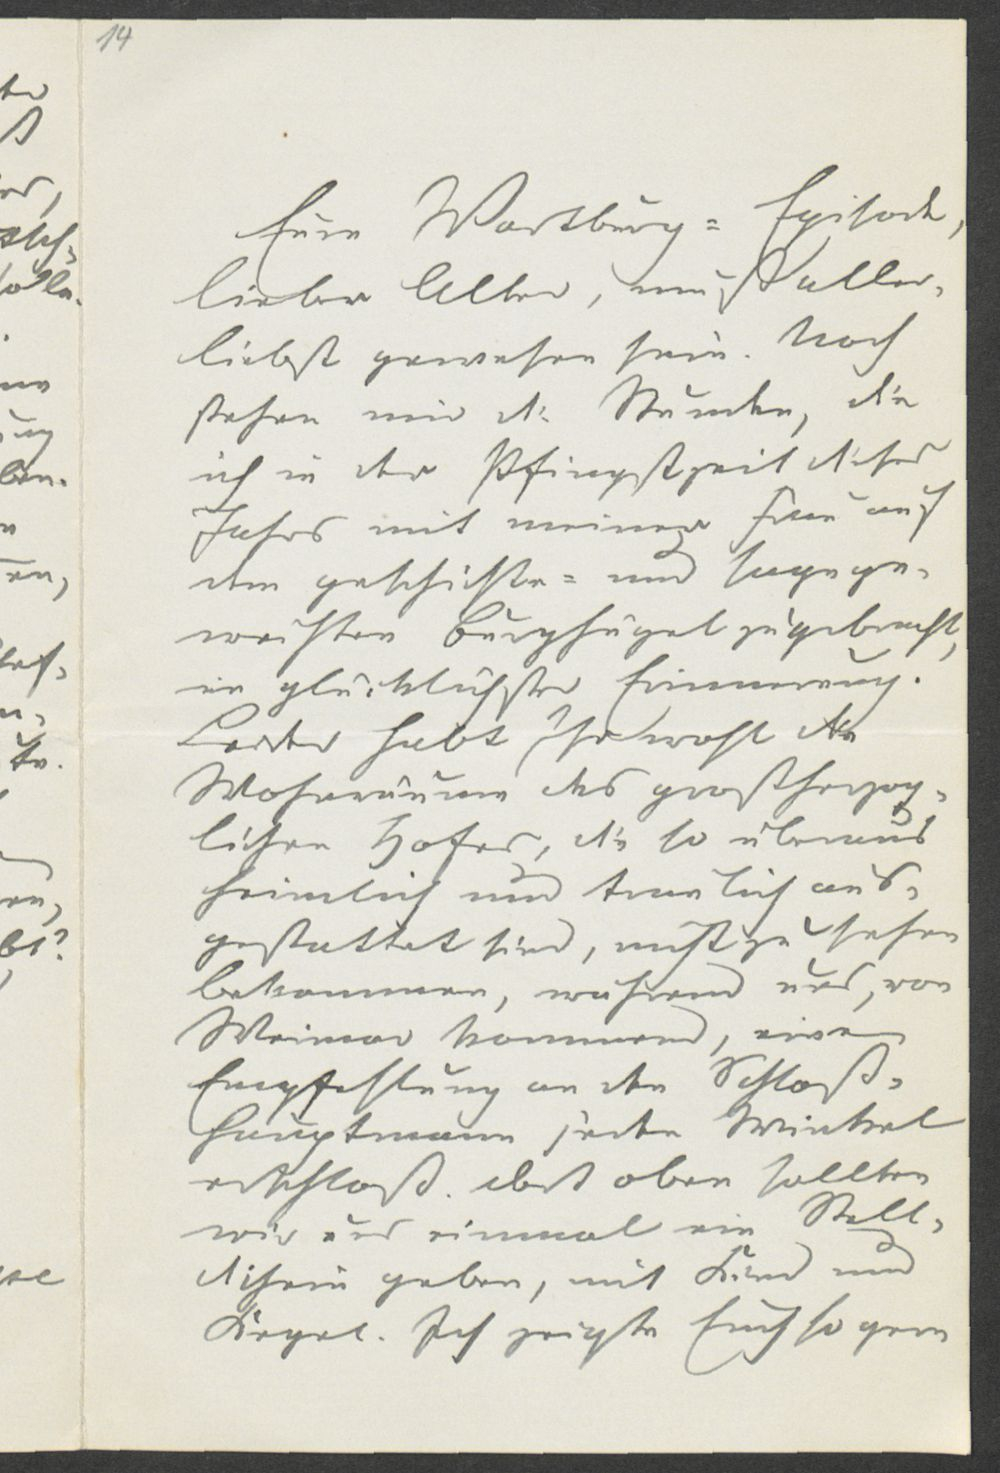 14
Eure Wartburg-Episode,
lieber Alter, muß aller-
liebst gewesen sein. Noch
stehen mir die Stunden, die
ich in der Pfingstzeit dieses
Jahres mit meiner Frau auf
dem geschichte- und sagege-
weihten Burghügel zugebracht,
in glücklichster Erinnerung.
Leider habt Ihr wohl die
Wohnräume des großherzog-
lichen Hofes, die so überaus
heimlich und traulich aus-
gestattet sind, nicht zu sehen
bekommen, während uns, von
Weimar kommend, eine
Empfehlung an den Schloß-
hauptmann jeden Winkel
erschloß. Dort oben sollten
wir uns einmal ein Stell-
dichein geben, mit Kind und
Kegel. Ich zeigte Euch so gern